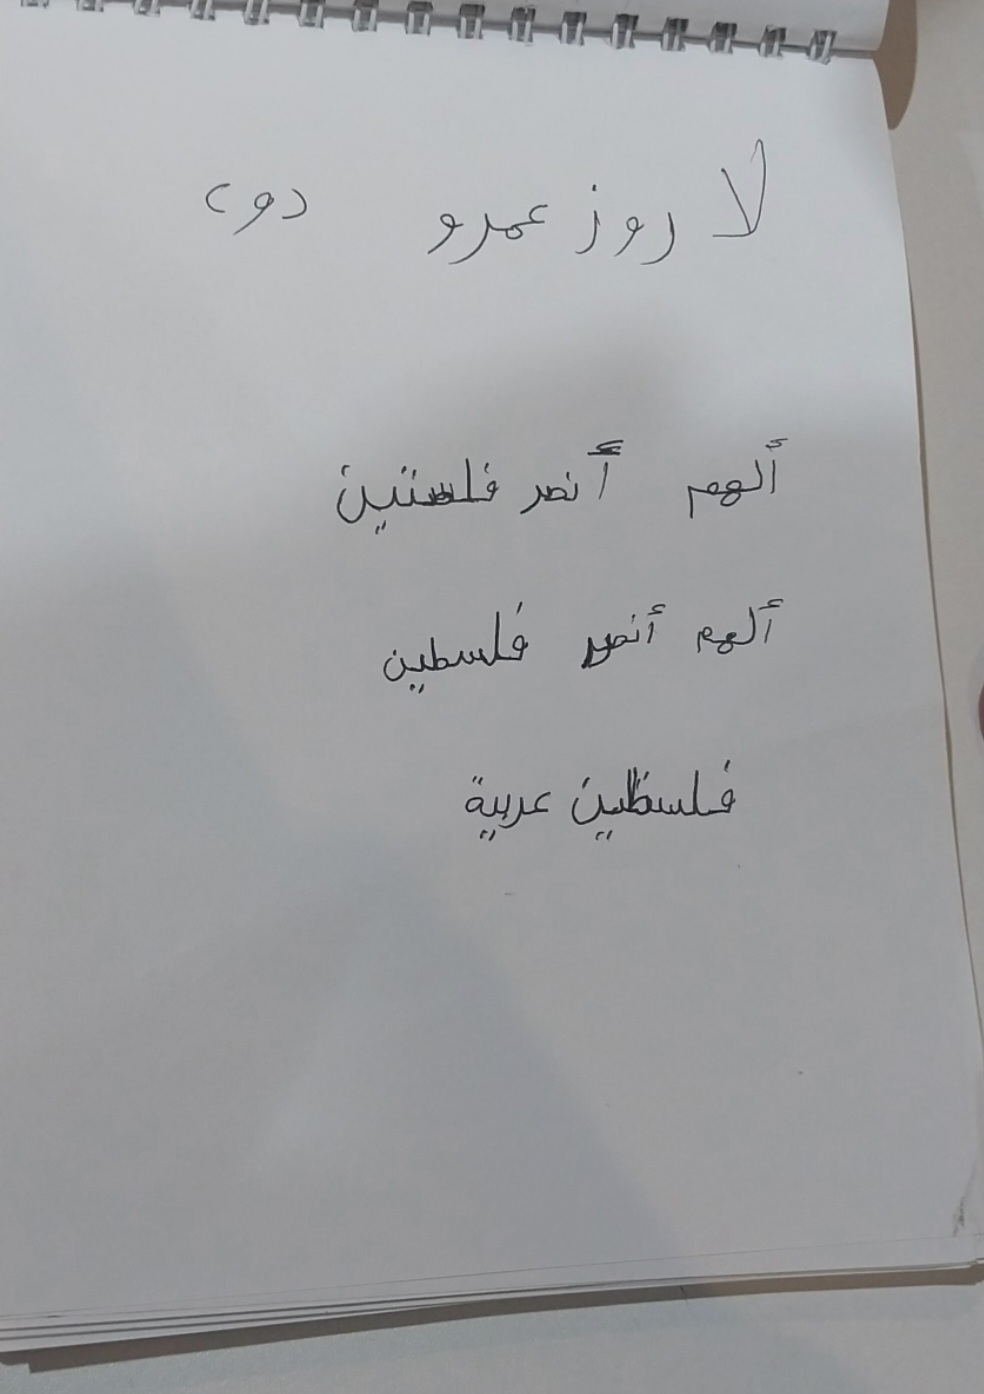 لا روز عمرو (و)
ألهم أنصر فلستين
ألهم أنصر فلسطين
فلسطين عربية